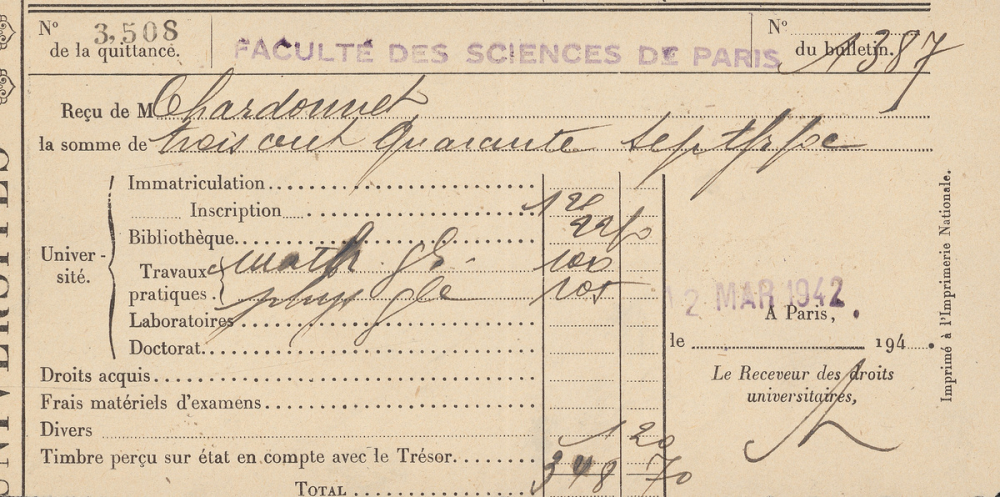 Nº 3,508 de la quittance.
FACULTÉ DES SCIENCES DE PARIS
Nº du bulletin. 1387
Reçu de M Chardonnet
la somme de trois cent quarante sept
Université.
Immatriculation
Inscription 120
Bibliothèque
Travaux pratiques. math. gle. 100
phys gle 105
Laboratoires
Doctorat
Droits acquis
Frais matériels d'examens
Divers
Timbre perçu sur état en compte avec le Trésor 1 20
TOTAL 348 70
2 MAR 1942
A Paris,
le 194 .
Le Receveur des droits
universitaires,
Imprimé à l'Imprimerie Nationale.
UNIVERSITÉS